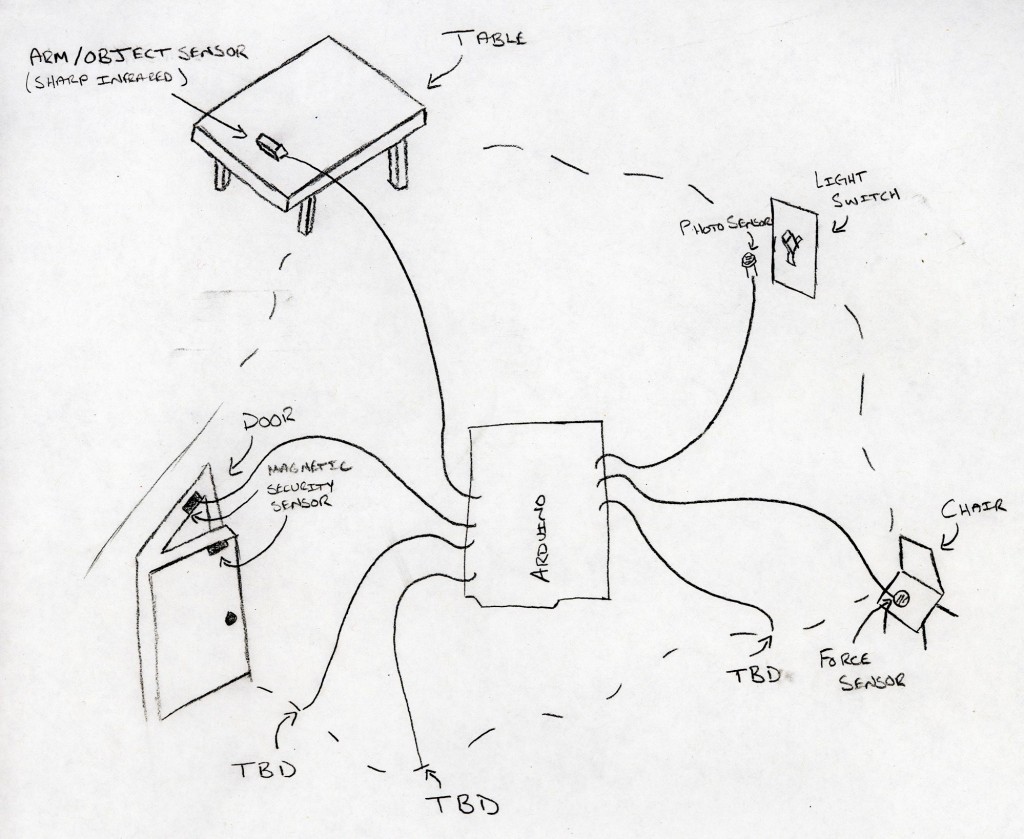 ARM/OBJECT SENSOR
(SHARP INFRARED)
TABLE
LIGHT
SWITCH
PHOTO SENSOR
DOOR
MAGNETIC
SECURITY
SENSOR
ARDUINO
CHAIR
FORCE
SENSOR
TBD
TBD
TBD